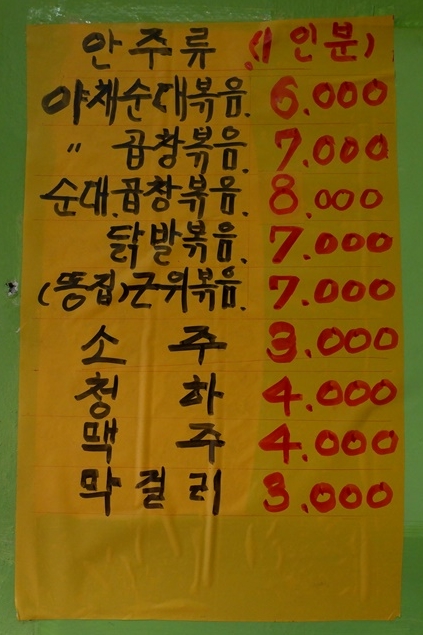 안주류 (1인분)
야채순대볶음. 6.000
〃 곱창볶음. 7.000
순대.곱창볶음. 8.000
닭발볶음. 7.000
(똥집)근위볶음. 7.000
소주 3.000
청하 4.000
맥주 4.000
막걸리 3.000